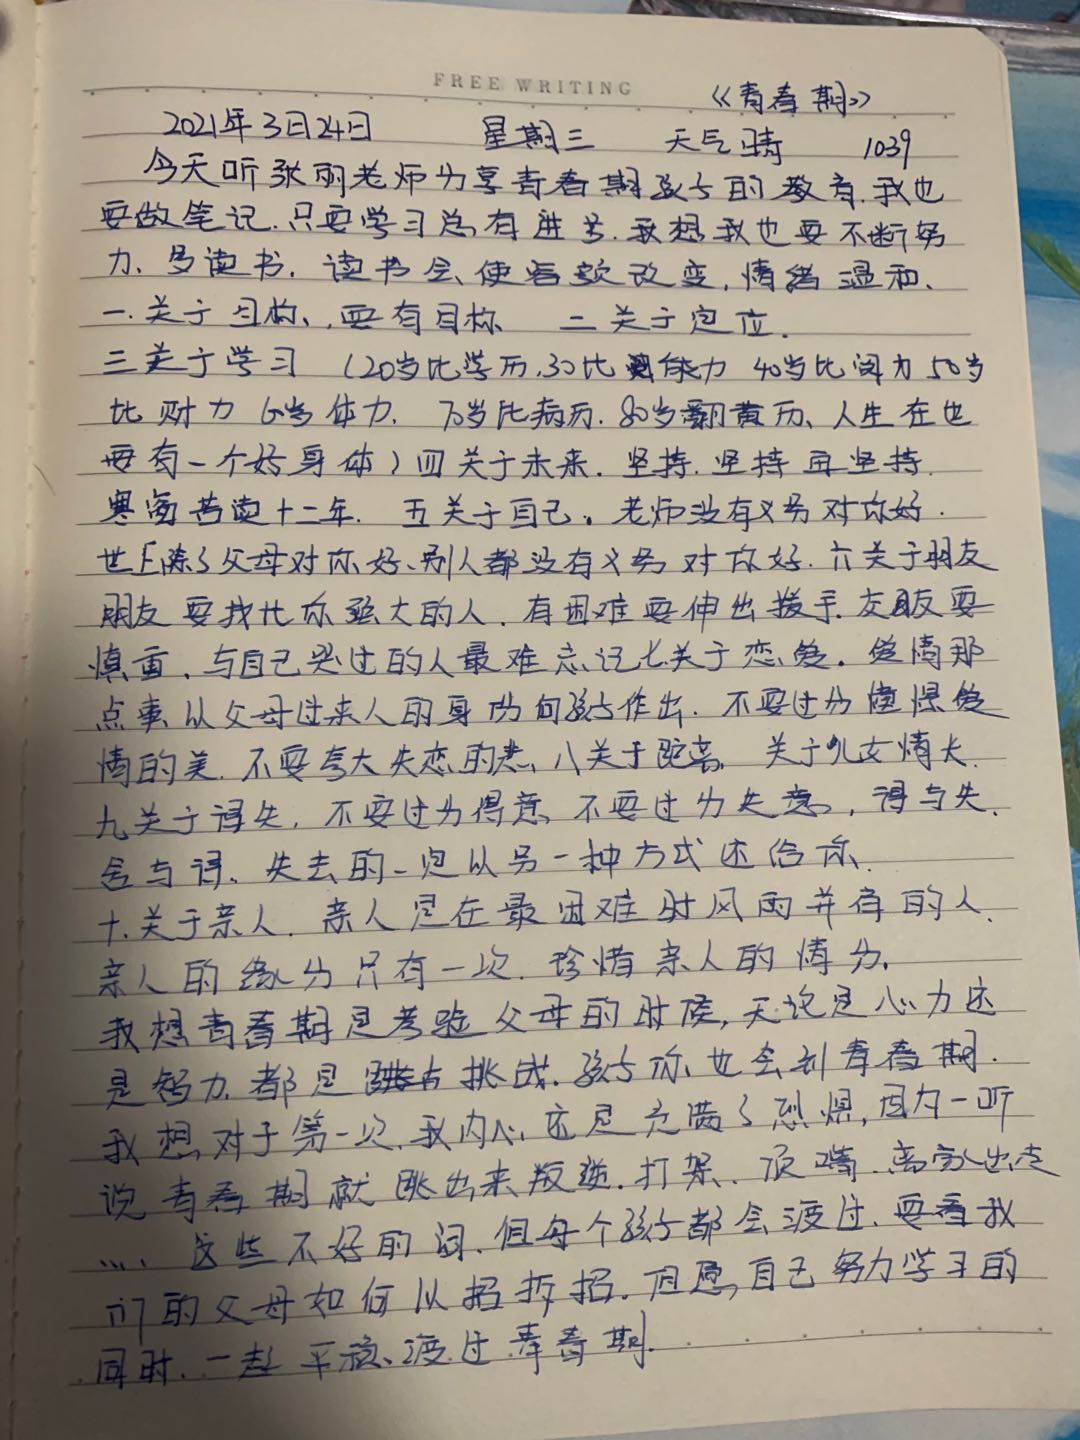 FREE WRITING
《青春期》
2021年3月24日 星期三 天气晴 1039
今天听张丽老师分享青春期孩子的教育.我也
要做笔记.只要学习总有进步.我想我也要不断努
力、多读书.读书会使容貌改变,情绪温和、
一.关于目标、要有目标、 二关于定位.
三关于学习 (20岁比学历.30比能力 40岁比阅力 50岁
比财力 60岁体力. 70岁比病历.80岁翻黄历、人生在世
要有一个好身体)四关于未来.坚持.坚持再坚持.
寒窗苦读十二年. 五关于自己。老师没有义务对你好.
世上除了父母对你好、别人都没有义务对你好.六关于朋友
朋友要找比你强大的人.有困难要伸出援手.交朋友要
慎重.与自己哭过的人最难忘记七关于恋爱.爱情那
点事从父母过来人的身份向孩子作出.不要过分憧憬爱
情的美.不要夸大失恋的悲、八关于距离. 关于儿女情长.
九关于得失.不要过分得意 不要过分失意,得与失.
舍与得、失去的一定从另一种方式还给你、
十.关于亲人.亲人是在最困难时风雨并肩的人.
亲人的缘分只有一次.珍惜亲人的情分.
我想青春期是考验父母的时候,无论是心力还
是智力.都是挑战.孩子你也会到青春期.
我想,对于第一次.我内心还是充满了恐惧,因为一听
说青春期就跳出来叛逆.打架、顶嘴.离家出走
……这些不好的词.但每个孩子都会渡过.要看我
们的父母如何从招拆招.但愿,自己努力学习的
同时.一起平稳、渡过青春期.